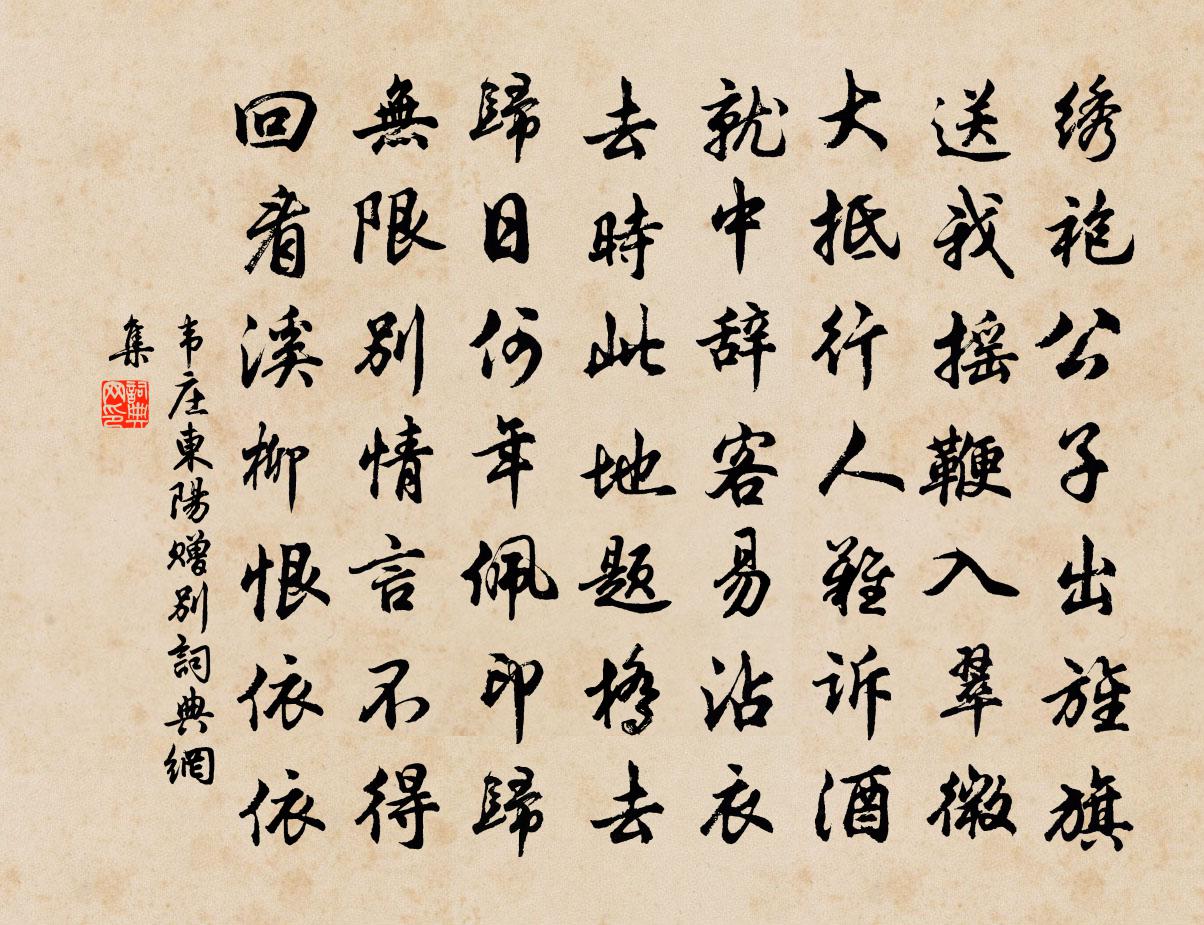 绣袍公子出旌旗
送我摇鞭入翠微
大抵行人難诉酒
就中辞客易沾衣
去時此地题橋去
歸日何年佩印歸
無限别情言不得
回看溪柳恨依依
韦庄東陽赠别詞典網
集
詞典
网印